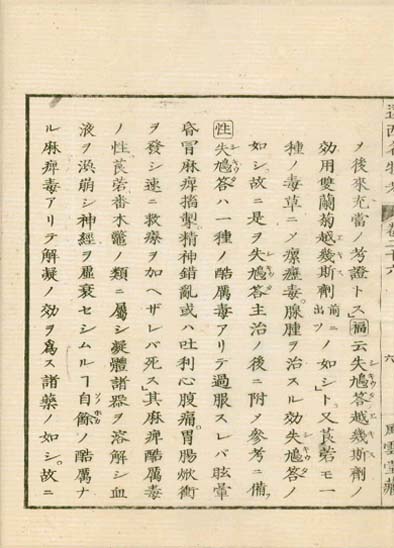 メ後來充當ノ考證トス」禍云失鳩答越幾斯劑ノ
効用雙蘭菊越幾斯劑前ニ出ツノ如シ」ト又莨菪モ一
種ノ毒草ニノ瘰癧毒。腺腫ヲ治スル効失鳩答ノ
如シ故ニ是ヲ失鳩答主治ノ後ニ附メ參考ニ備フ
性失鳩答ハ一種ノ酷厲毒アリテ過服スレバ眩暈
昏冒麻痺搐掣精神錯亂或ハ吐利心腹痛。胃腸焮衝
ヲ發シ速ニ救療ヲ加ヘザレバ死ス」其麻痺酷厲毒
ノ性莨菪番木鼈ノ類ニ屬シ凝體諸器ヲ溶解シ血
液ヲ崩シ神經ヲ虛衰セシムルヿ自餘ノ酷厲ナ
ル麻痺毒アリテ解凝ノ効ヲ爲ス諸藥ノ如シ。故ニ
遠西名物考 卷二十六 六 風雲堂藏